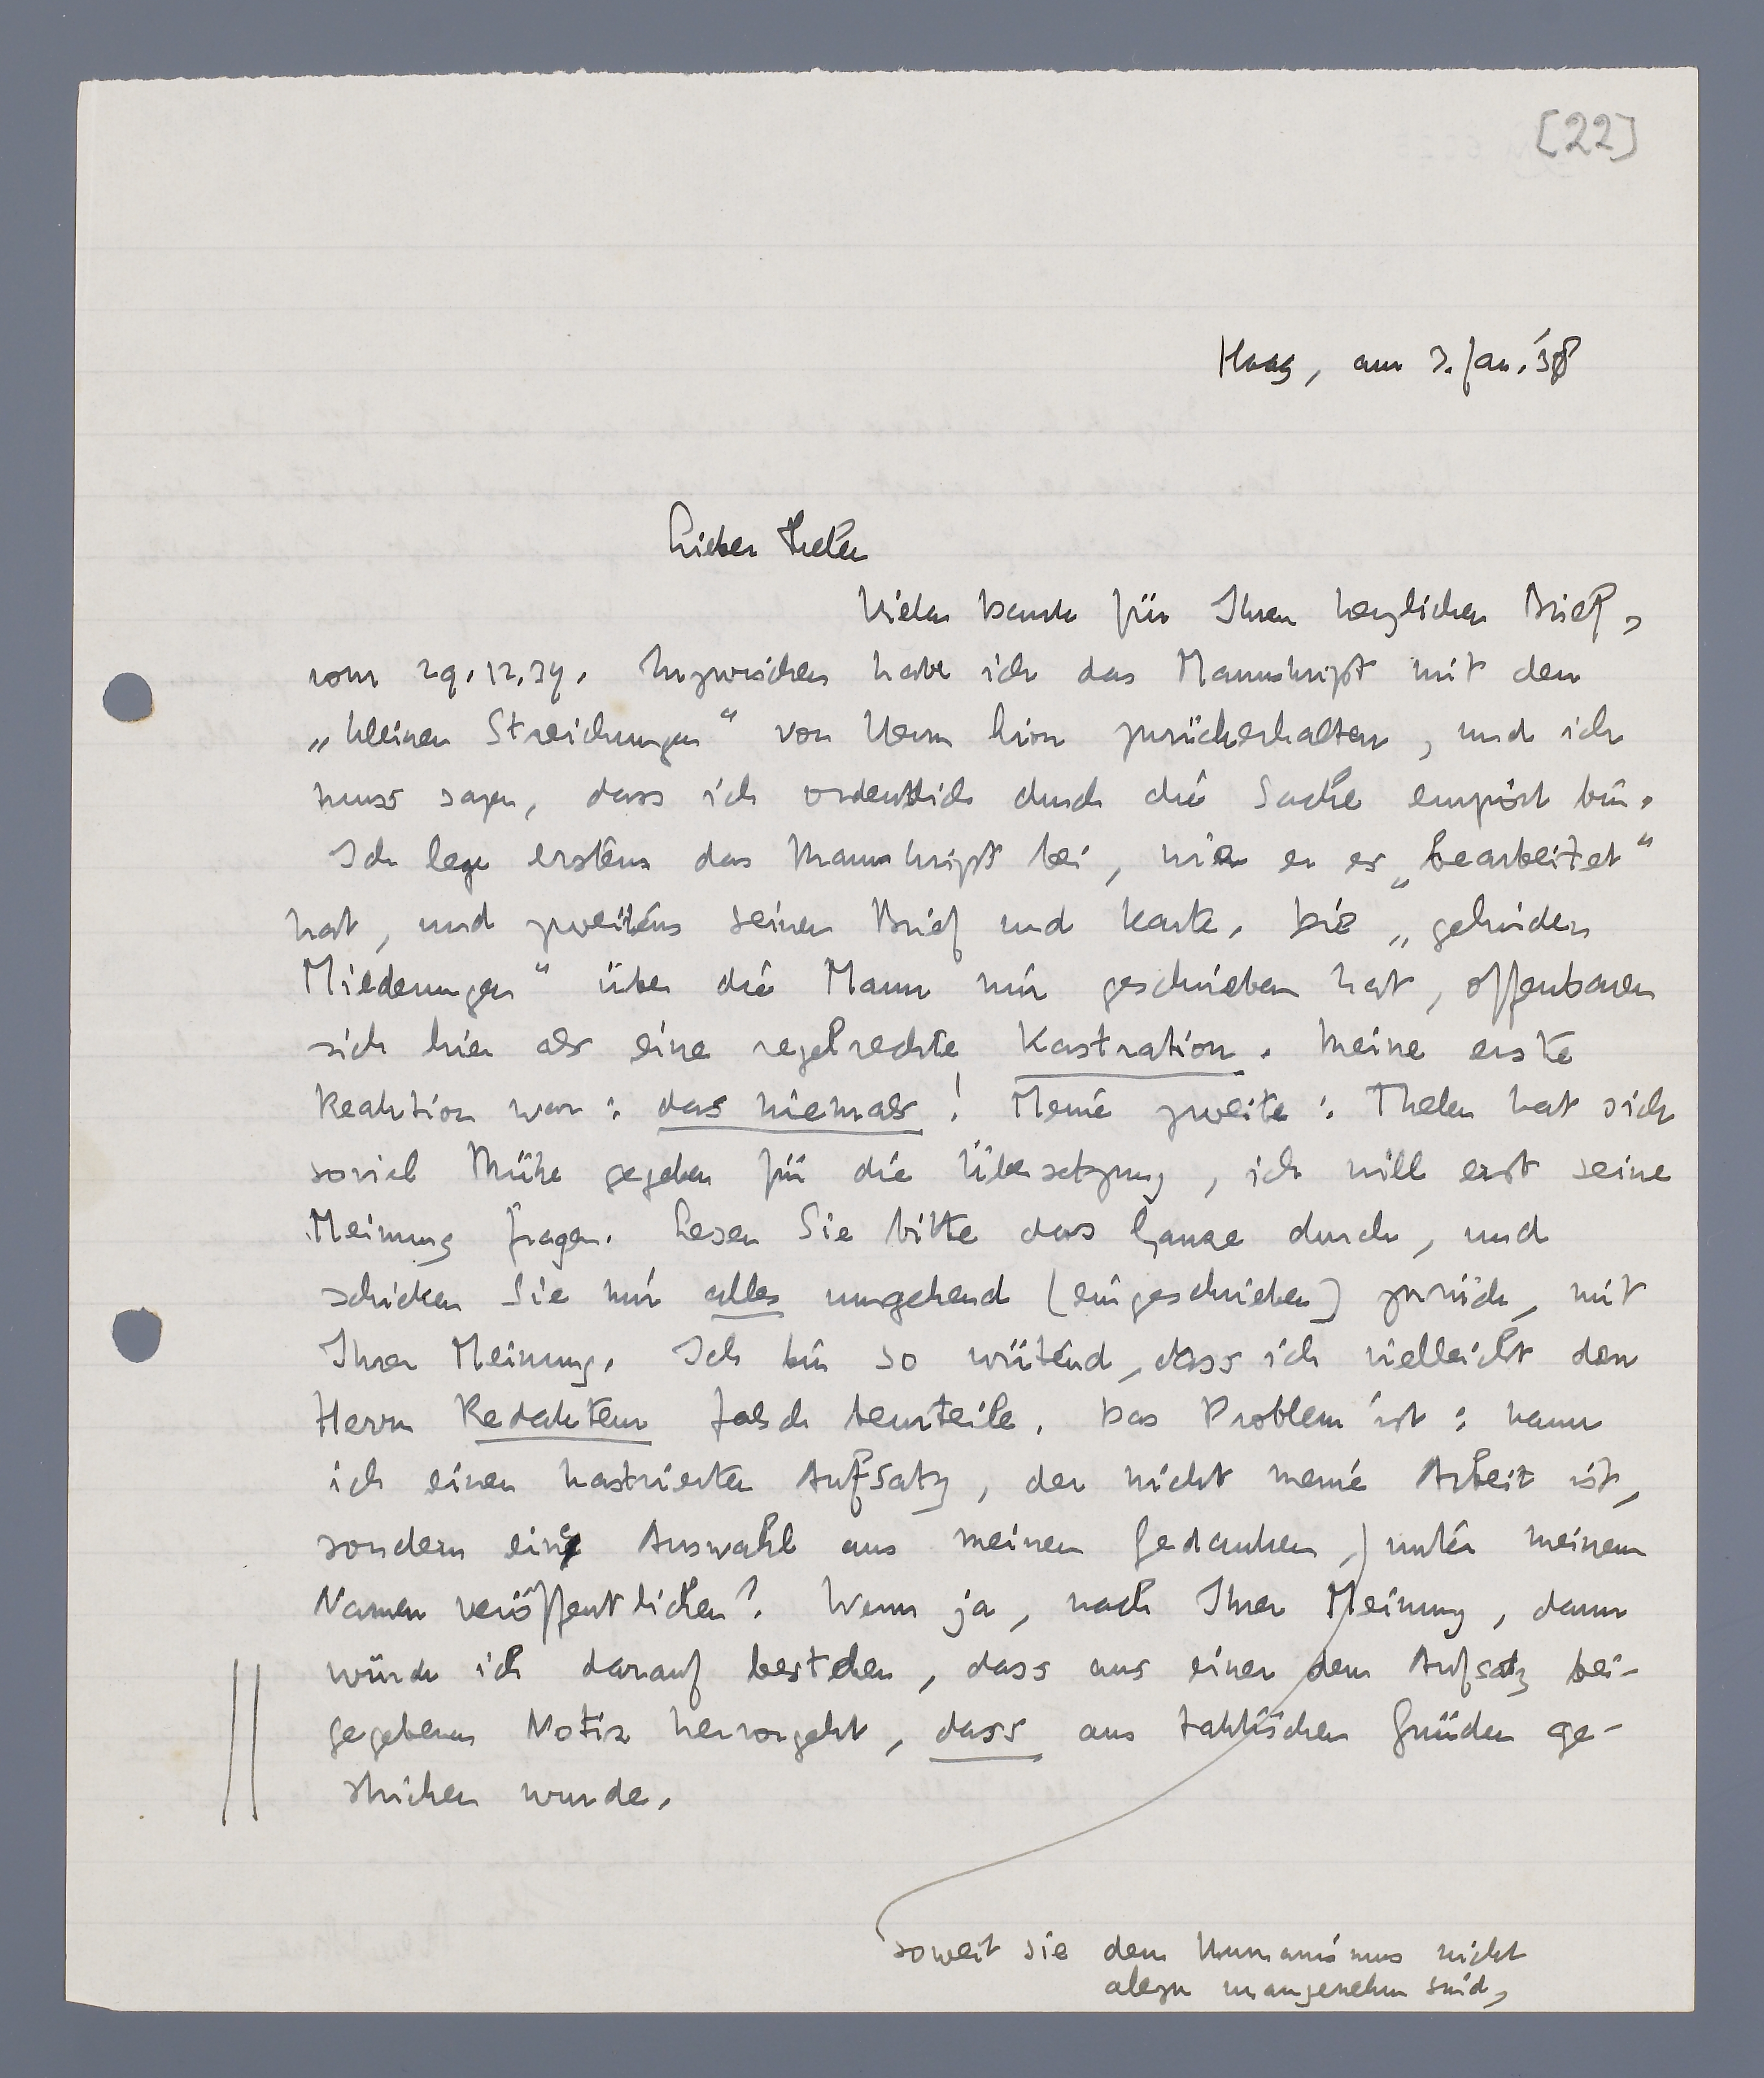 [22]
Haag, am 3. Jan. '38
Lieber Thelen
Vielen Dank für Ihren herzlichen Brief,
vom 29.12.37. Inzwischen habe ich das Manuskript mit den
„kleinen Streichungen“ von Herrn Lion zurückerhalten, und ich
muss sagen, dass ich ordentlich durch die Sache empört bin.
Ich lege erstens das Manuskript bei, wie er es „bearbeitet“
hat, und zweitens seinen Brief und Karte. Die „gelinden
Miederungen“ über die Mann mir geschrieben hat, offenbaren
sich hier als eine regelrechte Kastration. Meine erste
Reaktion war: das niemals! Meine zweite: Thelen hat sich
soviel Mühe gegeben für die Übersetzung, ich will erst seine
Meinung fragen. Lesen Sie bitte das Ganze durch, und
schicken Sie mir alles umgehend (eingeschrieben) zurück, mit
Ihrer Meinung. Ich bin so wütend, dass ich vielleicht den
Herrn Redakteur falsch beurteile. Das Problem ist: kann
ich einen kastrierten Aufsatz, der nicht meine Arbeit ist,
sondern eine Auswahl aus meinen Gedanken,) unter meinem
Namen veröffentlichen? Wenn ja, nach Ihrer Meinung, dann
würde ich darauf bestehen, dass aus einer dem Aufsatz bei-
gegebenen Notiz hervorgeht, dass aus taktischen Gründen ge-
strichen wurde.
soweit sie dem Humanismus nicht
alzu unangenehm sind,